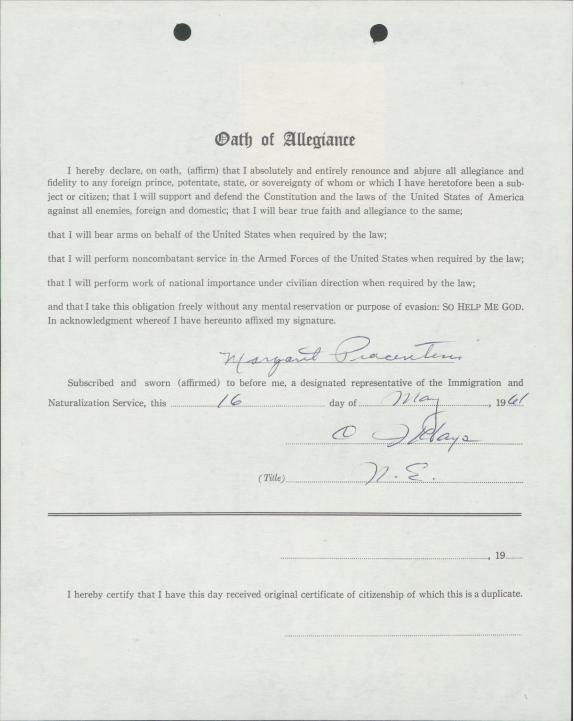 Oath of Allegiance
I hereby declare, on oath, (affirm) that I absolutely and entirely renounce and abjure all allegiance and
fidelity to any foreign prince, potentate, state, or sovereignty of whom or which I have heretofore been a sub-
ject or citizen; that I will support and defend the Constitution and the laws of the United States of America
against all enemies, foreign and domestic; that I will bear true faith and allegiance to the same;
that I will bear arms on behalf of the United States when required by the law;
that I will perform noncombatant service in the Armed Forces of the United States when required by the law;
that I will perform work of national importance under civilian direction when required by the law;
and that I take this obligation freely without any mental reservation or purpose of evasion: SO HELP ME GOD.
In acknowledgment whereof I have hereunto affixed my signature.
Margaret Piacentini
Subscribed and sworn (affirmed) to before me, a designated representative of the Immigration and
Naturalization Service, this 16 day of May, 1961
Hays
(Title) N. E.
, 19
I hereby certify that I have this day received original certificate of citizenship of which this is a duplicate.